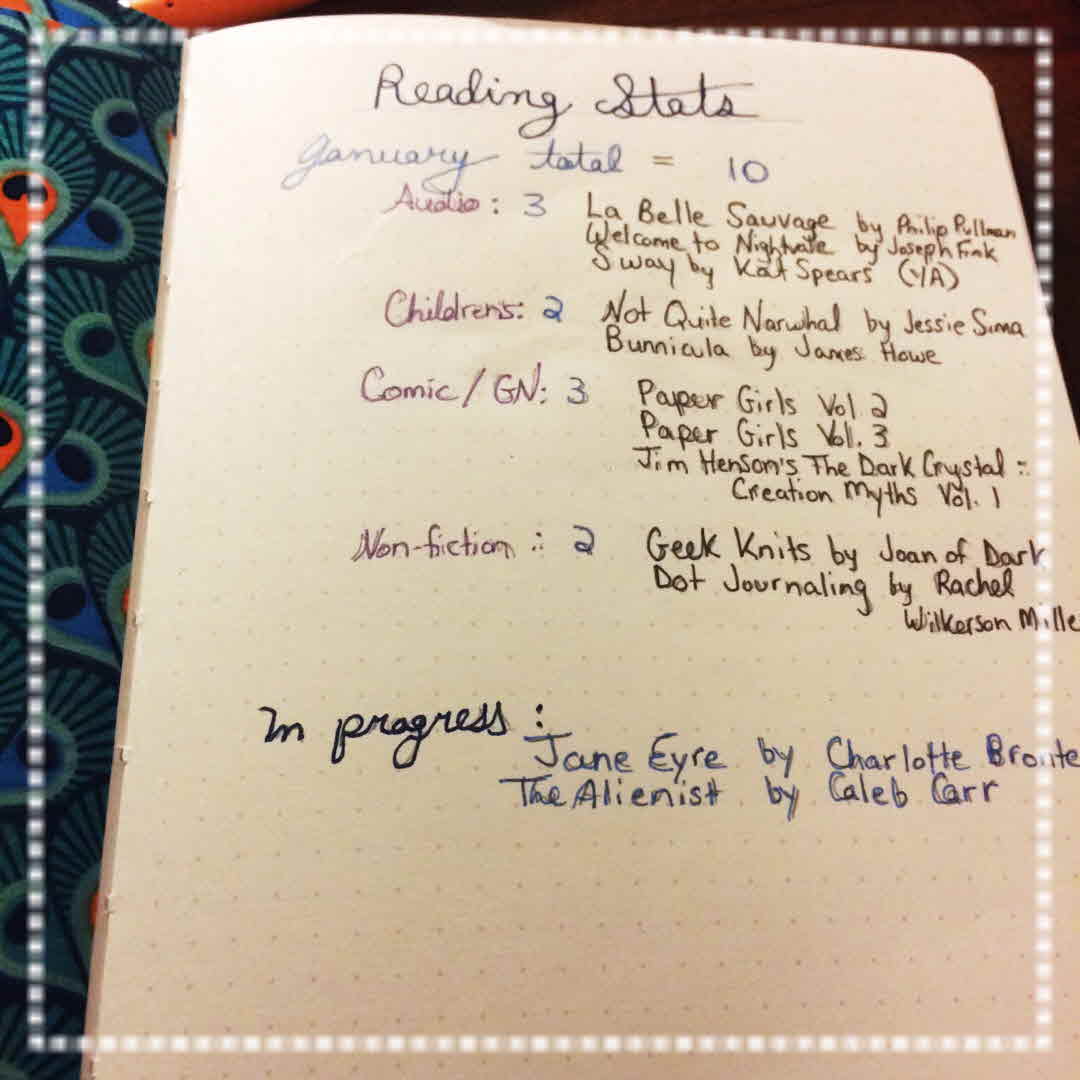 Reading Stats
January total = 10
Audio: 3 La Belle Sauvage by Philip Pullman
Welcome to Nightvale by Joseph Fink
Sway by Kat Spears (YA)
Childrens: 2 Not Quite Narwhal by Jessie Sima
Bunnicula by James Howe
Comic/GN: 3 Paper Girls Vol 2
Paper Girls Vol. 3
Jim Henson's The Dark Crystal :
Creation Myths Vol. 1
Non-fiction : 2 Geek Knits by Joan of Dark
Dot Journaling by Rachel
Wilkerson Mille
In progress :
Jane Eyre by Charlotte Bronte
The Alienist by Caleb Carr